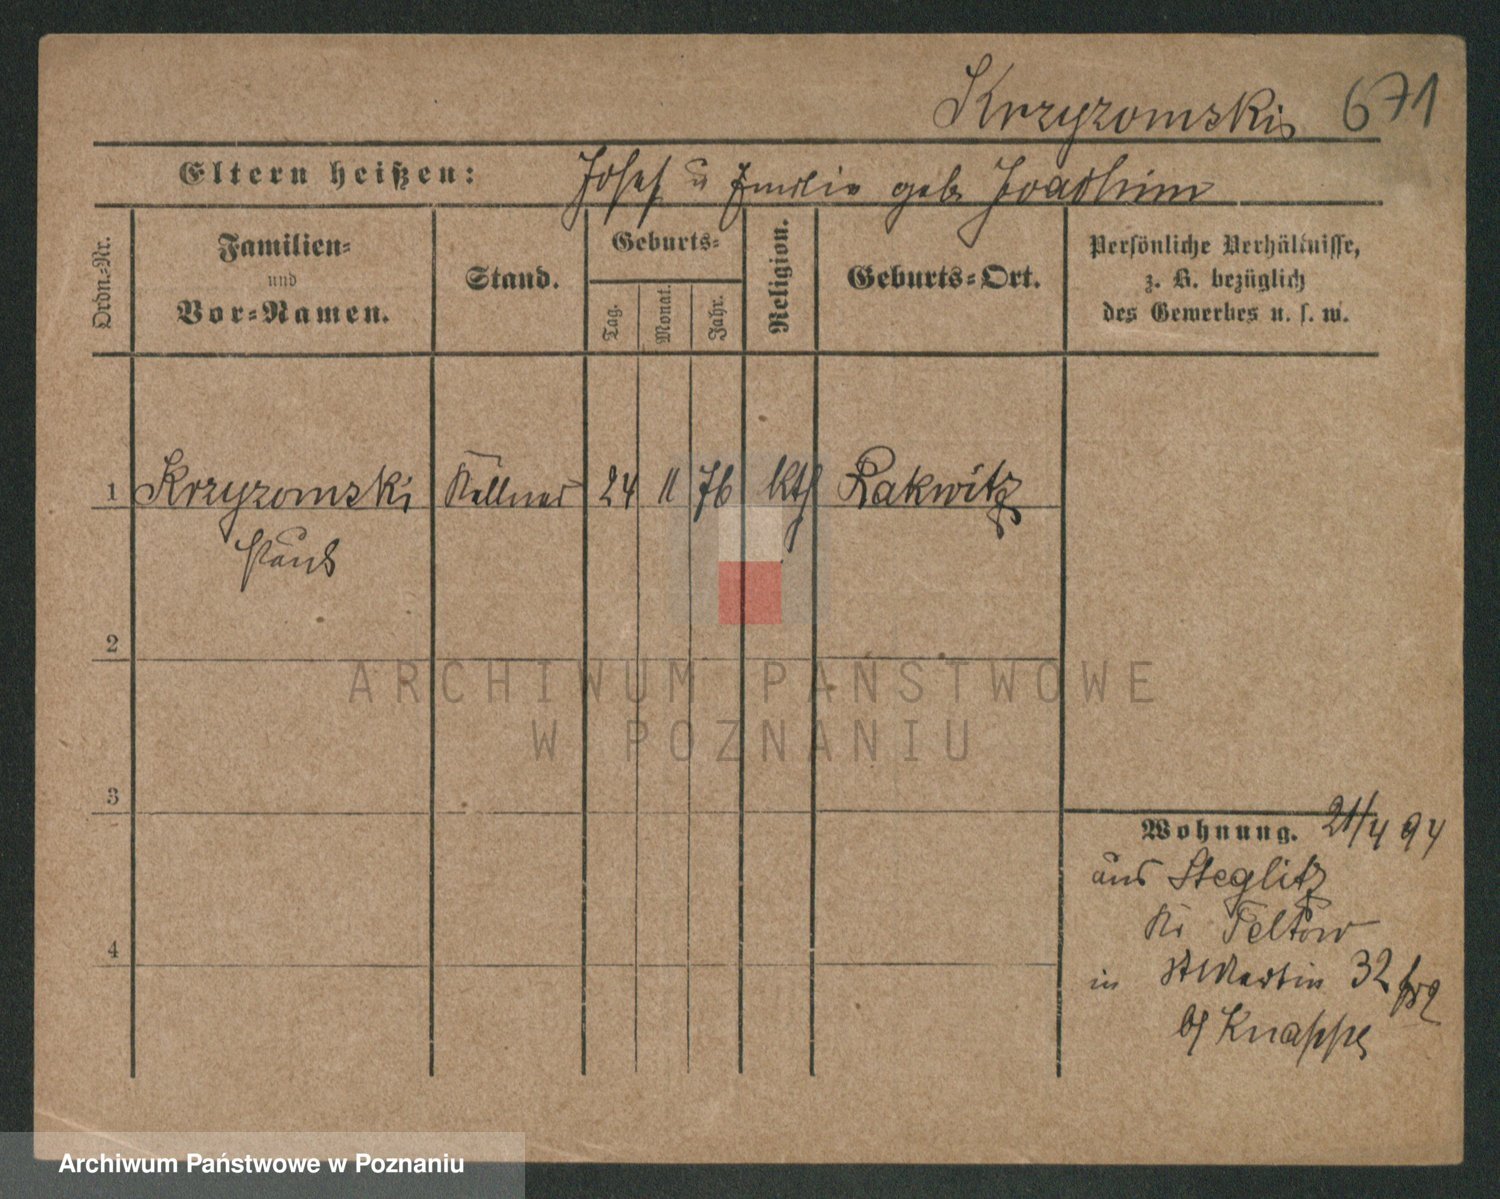 Krzyzomski 671
Eltern heißen: Josef u Emilie geb Joachim
Ordn.-Nr.
Familien-
und
Vor-Namen.
Stand.
Geburts-
Tag.
Monat.
Jahr.
Religion.
Geburts-Ort.
Persönliche Verhältnisse,
z. B. bezüglich
des Gewerbes u. s. w.
1 Krzyzomski Kellner 24 11 76 kth Rakwitz
Paul
2
3
4
Wohnung. 21/4 94
aus Steglitz
Kr Teltow
in St Martin 32
bei Knappe
ARCHIWUM PAŃSTWOWE
W POZNANIU
Archiwum Państwowe w Poznaniu